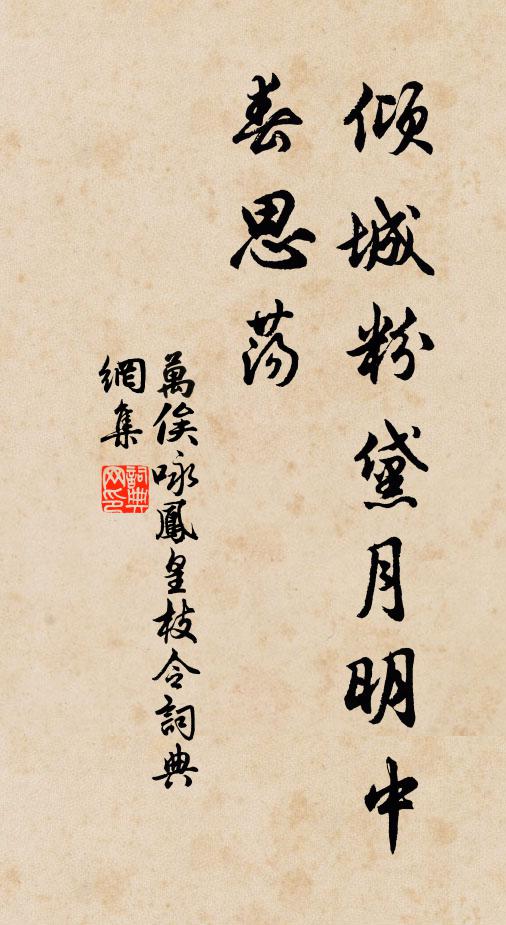 傾城粉黛月明中
春思蕩
萬俟咏鳳皇枝令詞典
網集
詞典
网印